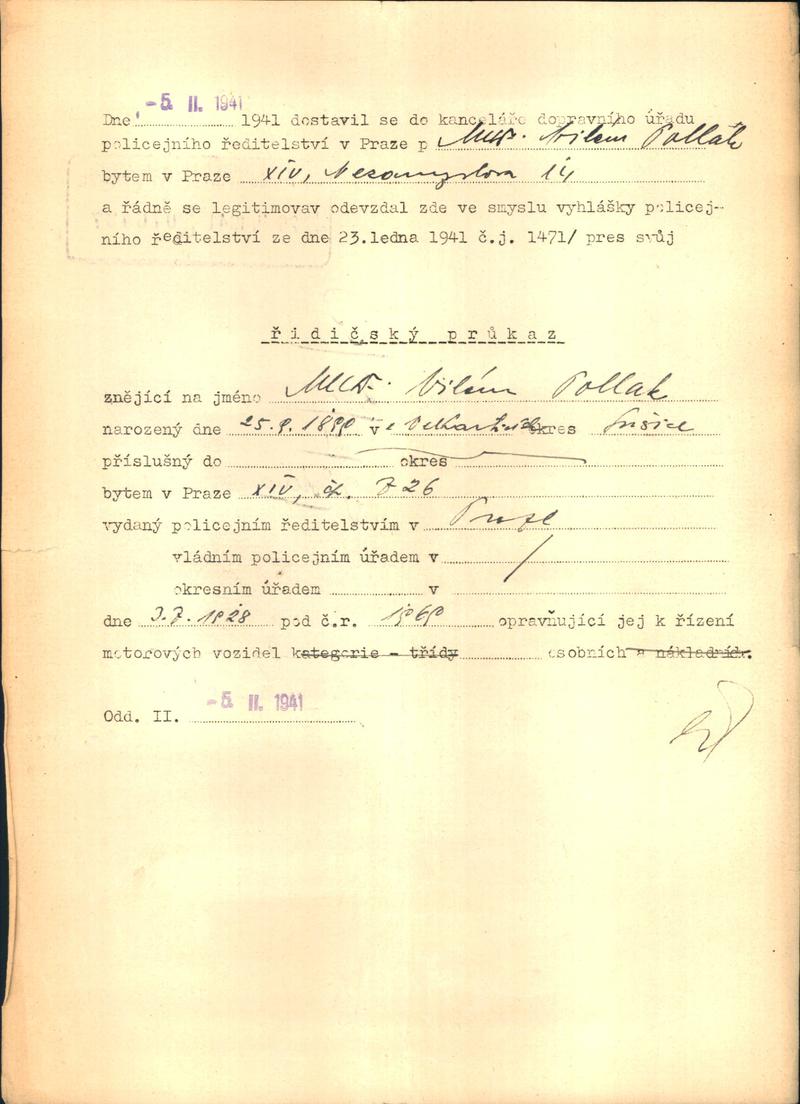 -5. II. 1941
Dne 1941 dostavil se do kanceláře dopravního úřadu
policejního ředitelství v Praze p MUDr. Vilém Pollak
bytem v Praze XIV, Nezamyslova 14
a řádně se legitimovav odevzdal zde ve smyslu vyhlášky policej-
ního ředitelství ze dne 23.ledna 1941 č.j. 1471/ pres svůj
řidičský průkaz
znějící na jméno MUDr. Vilém Pollak
narozený dne 25.9.1890 v okres Sušice
příslušný do okres
bytem v Praze XIV, čp. 726
vydaný policejním ředitelstvím v Praze
vládním policejním úřadem v
okresním úřadem v
dne 3.7.1928 pod č.r. opravňující jej k řízení
motorových vozidel kategorie - třídy osobních - nákladních.
-5. II. 1941
Odd. II.